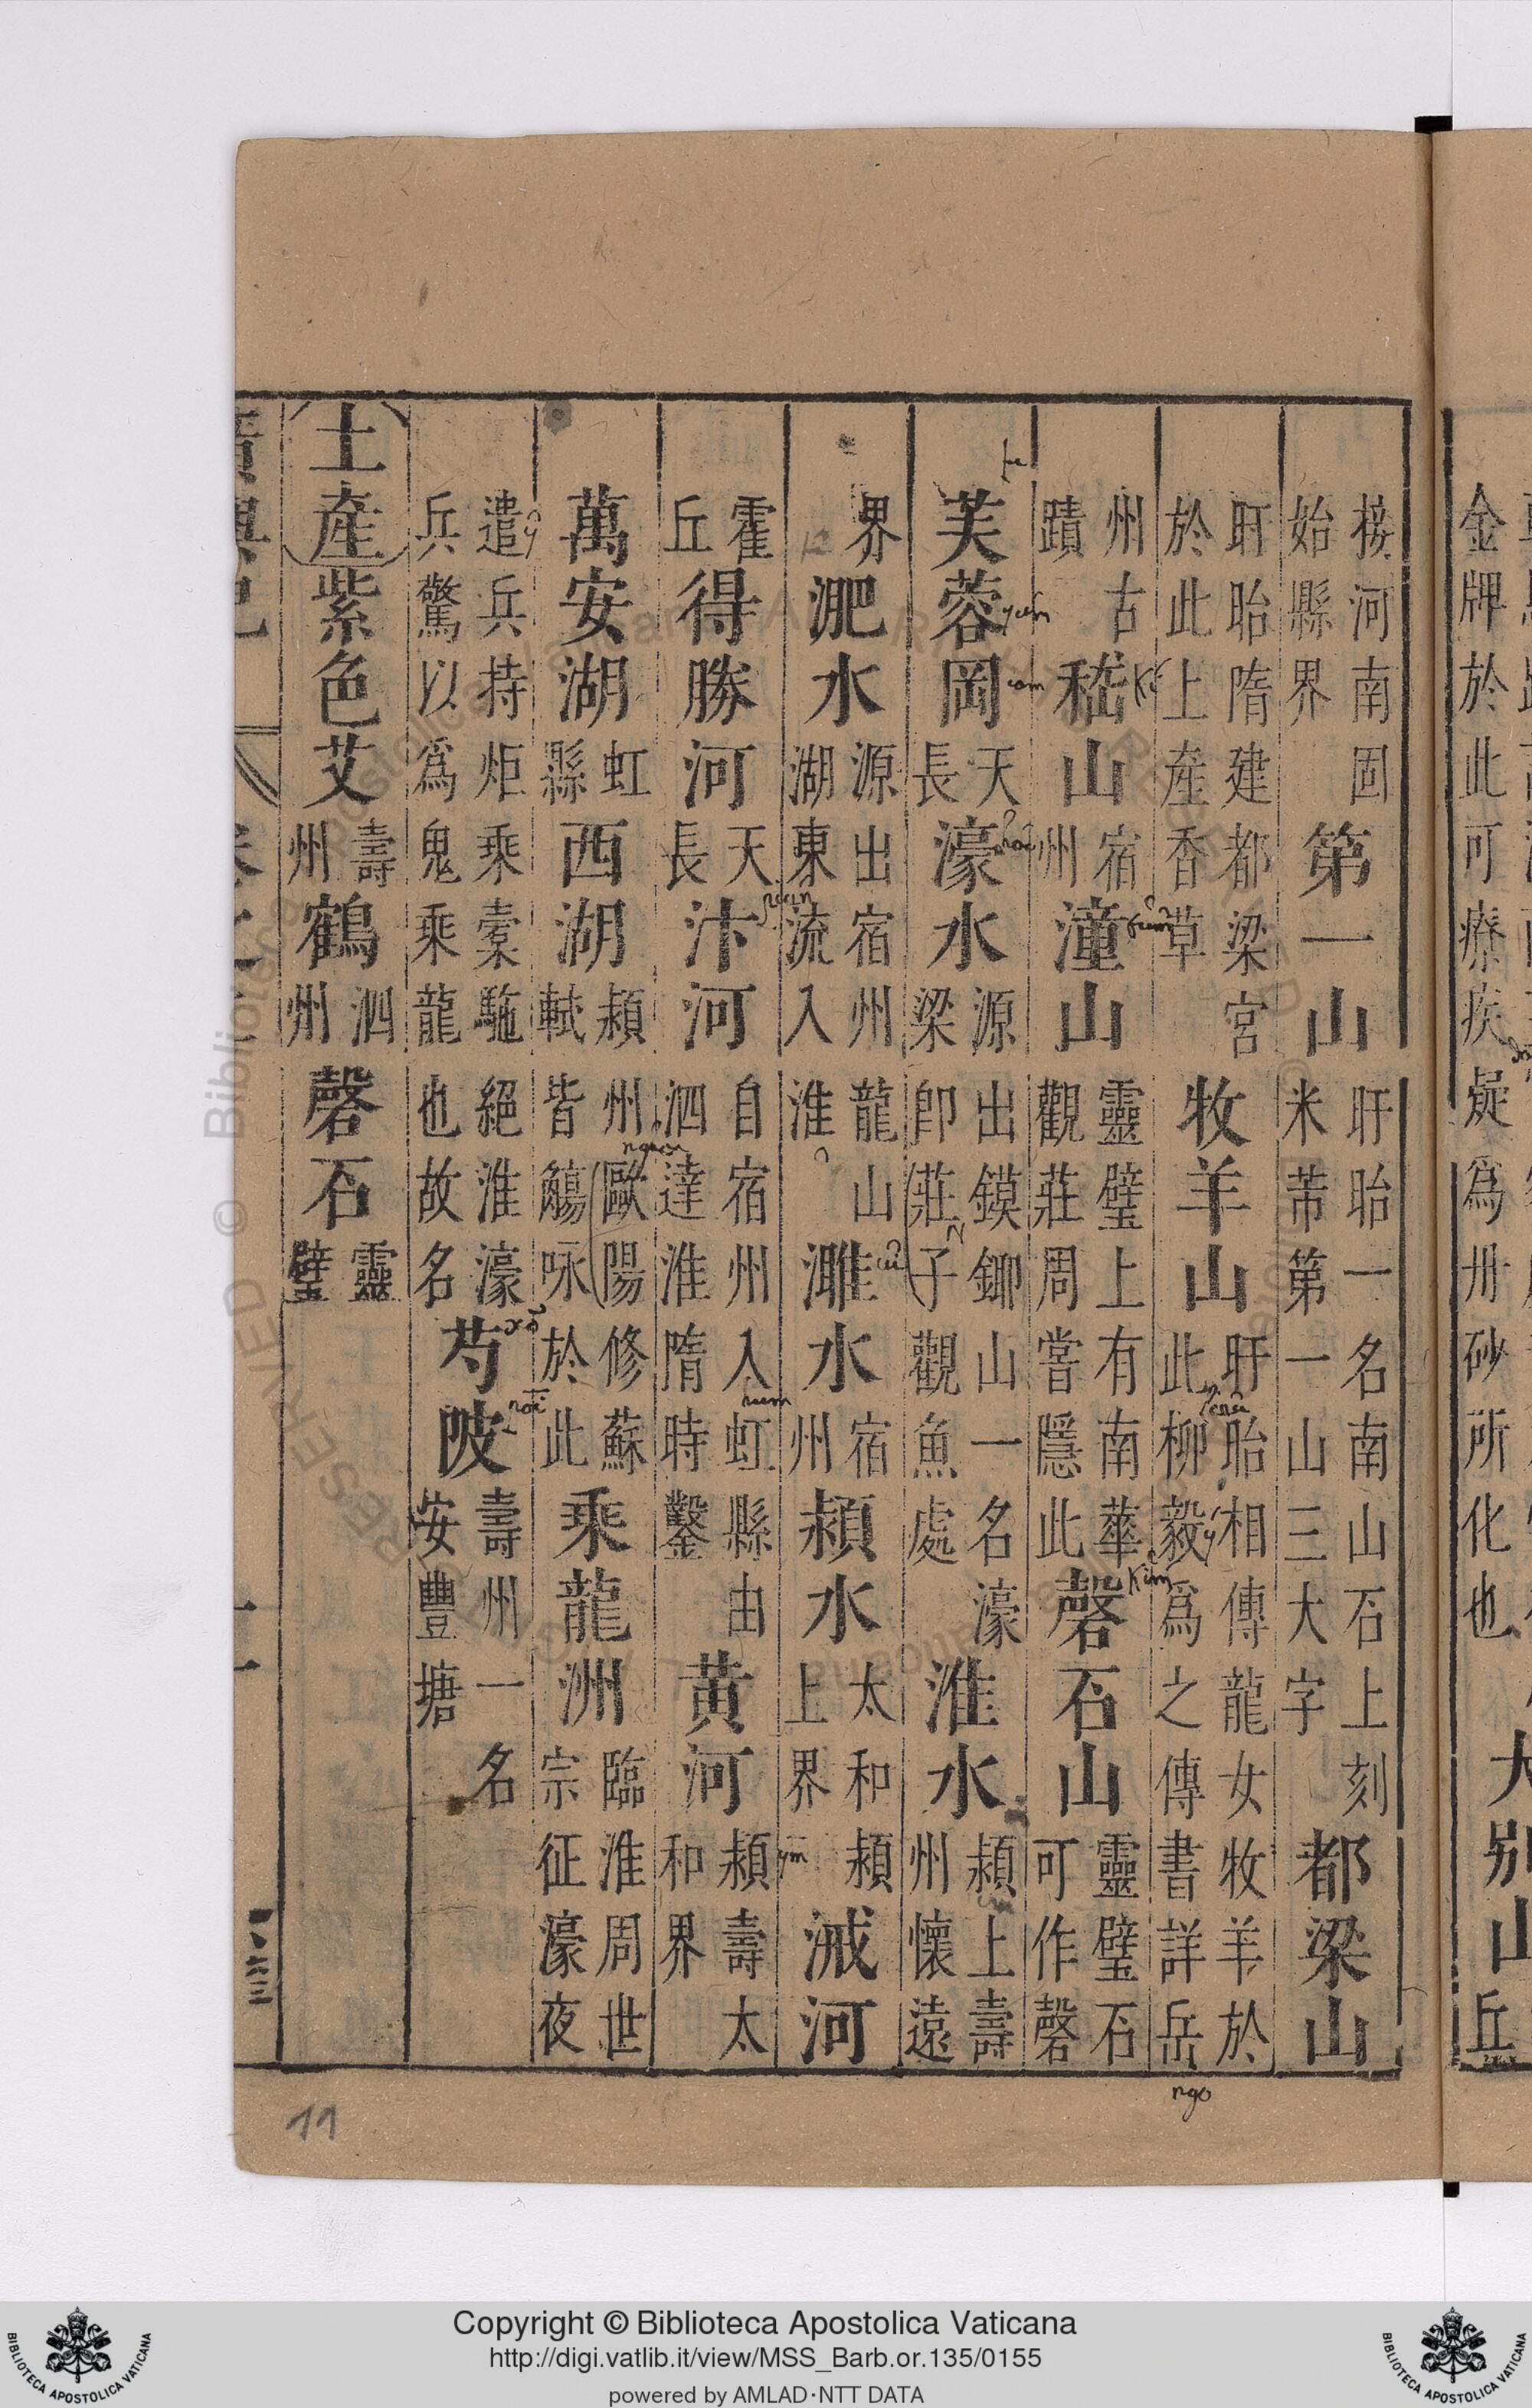 金牌於此可療疾疑爲丹砂所化也
大别山
丘
接河南固
始縣界
第一山
盱眙一名南山石上刻
米芾第一山三大字
都梁山
盱眙隋建都梁宮
於此上産香草
牧羊山
盱眙相傳龍女牧羊於
此柳毅爲之傳書詳岳
ngo
州古
蹟
嵇山
宿
州
潼山
靈璧上有南華
觀莊周嘗隱此
磬石山
靈璧石
可作磬
芙蓉岡
天
長
濠水
源出鏌鎁山一名濠
梁卽莊子觀魚處
淮水
潁上壽
州懷遠
界
淝水
源出宿州龍山
湖東流入淮
濉水
宿
州
潁水
太和潁
上界
河
霍
丘
得勝河
天
長
汴河
自宿州入虹縣由
泗達淮隋時鑿
黄河
潁壽太
和界
萬安湖
虹
縣
西湖
潁州歐陽修蘇
軾皆觴咏於此
乘龍洲
臨淮周世
宗征濠夜
遣兵持炬乘橐駞絕淮濠
兵驚以爲鬼乘龍也故名
芍陂
壽州一名
安豐塘
土産
紫色艾
壽
州
鶴
泗
州
磬石
靈
璧
11
Copyright © Biblioteca Apostolica Vaticana
http://digi.vatlib.it/view/MSS_Barb.or.135/0155
powered by AMLAD·NTT DATA
BIBLIOTECA APOSTOLICA VATICANA
BIBLIOTECA APOSTOLICA VATICANA